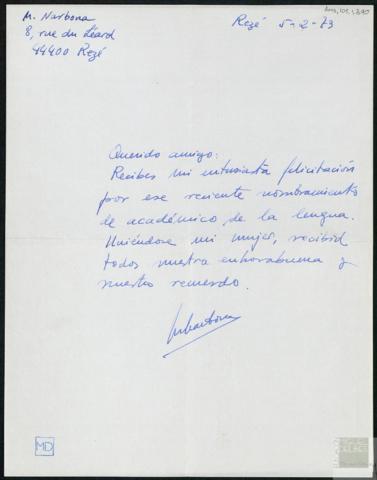 M. Narbona
8, rue du Léard
44400 Rezé
Rezé 5-2-73
Querido amigo:
Recibes mi entusiasta felicitación
por ese reciente nombramiento
de académico de la lengua.
Uniéndose mi mujer, recibid
todos nuestra enhorabuena y
nuestro recuerdo.
MNarbona
MD